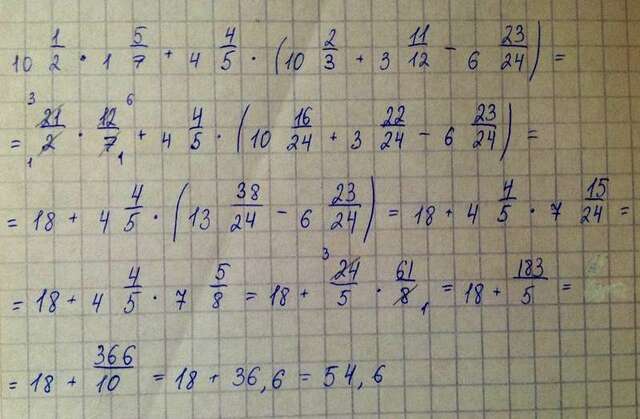 10 1/2 · 1 5/7 + 4 4/5 · (10 2/3 + 3 11/12 − 6 23/24) =
= ³21/2₁ · 12⁶/7₁ + 4 4/5 · (10 16/24 + 3 22/24 − 6 23/24) =
= 18 + 4 4/5 · (13 38/24 − 6 23/24) = 18 + 4 4/5 · 7 15/24 =
= 18 + 4 4/5 · 7 5/8 = 18 + ³24/5 · 61/8₁ = 18 + 183/5 =
= 18 + 366/10 = 18 + 36,6 = 54,6